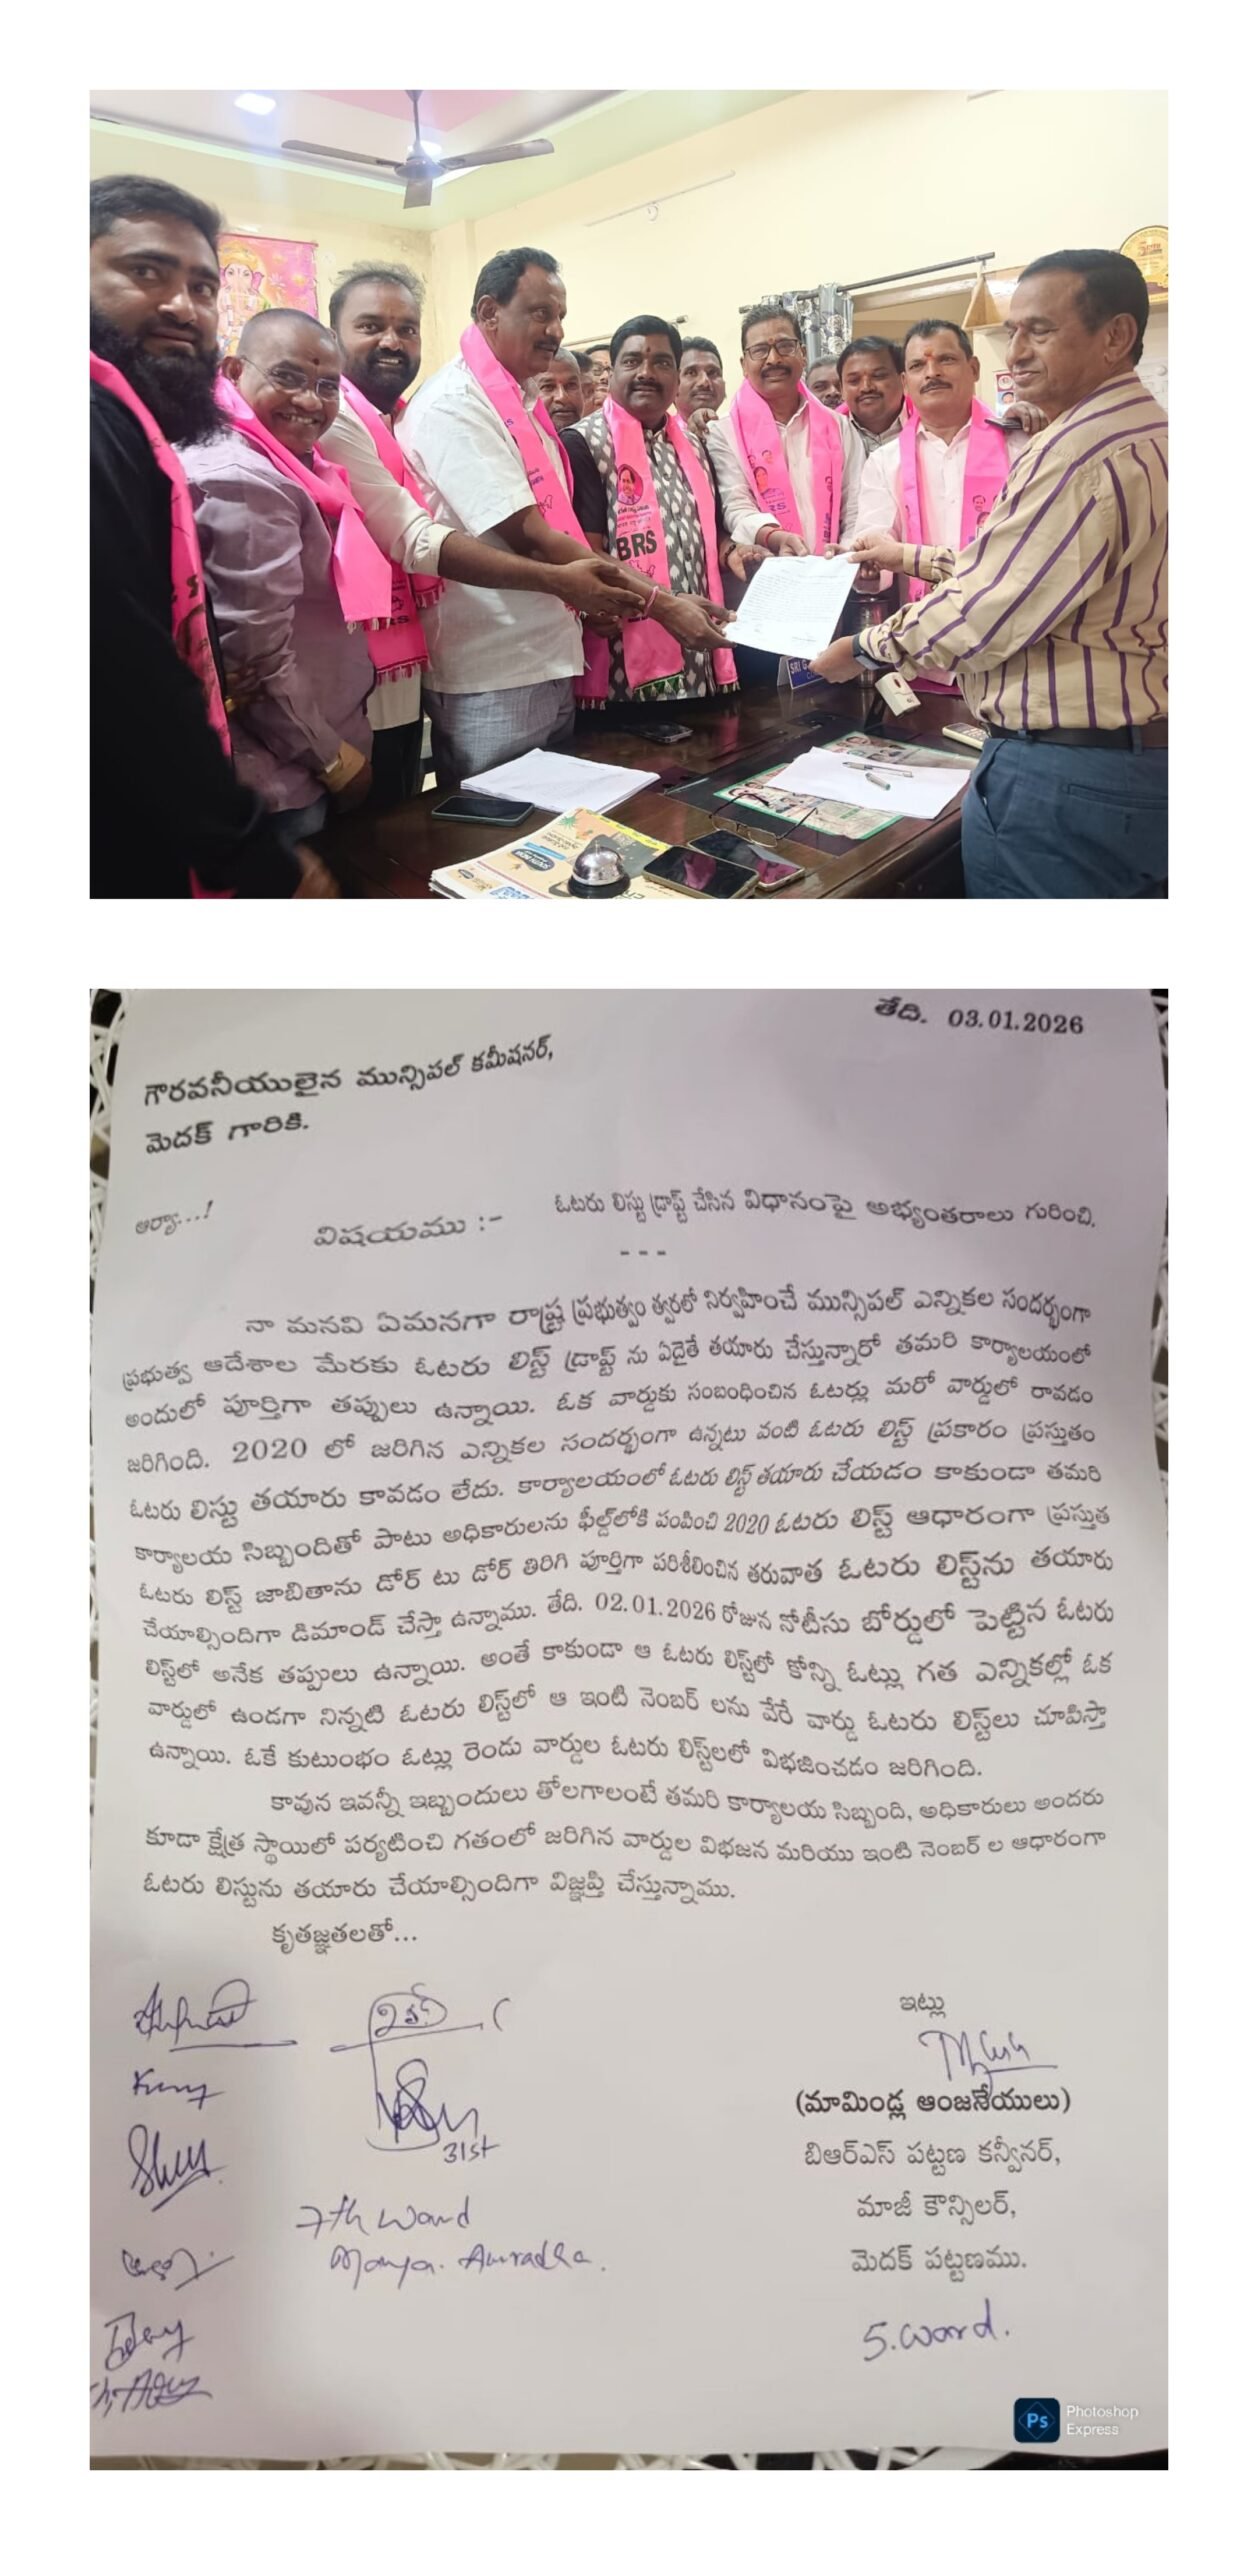 BRS
SRI G
తేది. 03.01.2026
గౌరవనీయులైన మున్సిపల్ కమీషనర్,
మెదక్ గారికి.
ఆర్యా...!
విషయము :- ఓటరు లిస్టు డ్రాప్ట్ చేసిన విధానంపై అభ్యంతరాలు గురించి.
---
నా మనవి ఏమనగా రాష్ట్ర ప్రభుత్వం త్వరలో నిర్వహించే మున్సిపల్ ఎన్నికల సందర్భంగా
ప్రభుత్వ ఆదేశాల మేరకు ఓటరు లిస్ట్ డ్రాప్ట్ ను ఏదైతే తయారు చేస్తున్నారో తమరి కార్యాలయంలో
అందులో పూర్తిగా తప్పులు ఉన్నాయి. ఓక వార్డుకు సంబంధించిన ఓటర్లు మరో వార్డులో రావడం
జరిగింది. 2020 లో జరిగిన ఎన్నికల సందర్భంగా ఉన్నటు వంటి ఓటరు లిస్ట్ ప్రకారం ప్రస్తుతం
ఓటరు లిస్టు తయారు కావడం లేదు. కార్యాలయంలో ఓటరు లిస్ట్ తయారు చేయడం కాకుండా తమరి
కార్యాలయ సిబ్బందితో పాటు అధికారులను ఫీల్డ్‌లోకి పంపించి 2020 ఓటరు లిస్ట్ ఆధారంగా ప్రస్తుత
ఓటరు లిస్ట్ జాబితాను డోర్ టు డోర్ తిరిగి పూర్తిగా పరిశీలించిన తరువాత ఓటరు లిస్ట్‌ను తయారు
చేయాల్సిందిగా డిమాండ్ చేస్తా ఉన్నాము. తేది. 02.01.2026 రోజున నోటీసు బోర్డులో పెట్టిన ఓటరు
లిస్ట్‌లో అనేక తప్పులు ఉన్నాయి. అంతే కాకుండా ఆ ఓటరు లిస్ట్‌లో కోన్ని ఓట్లు గత ఎన్నికల్లో ఓక
వార్డులో ఉండగా నిన్నటి ఓటరు లిస్ట్‌లో ఆ ఇంటి నెంబర్ లను వేరే వార్డు ఓటరు లిస్ట్‌లు చూపిస్తా
ఉన్నాయి. ఓకే కుటుంభం ఓట్లు రెండు వార్డుల ఓటరు లిస్ట్‌లలో విభజించడం జరిగింది.
కావున ఇవన్నీ ఇబ్బందులు తోలగాలంటే తమరి కార్యాలయ సిబ్బంది, అధికారులు అందరు
కూడా క్షేత్ర స్థాయిలో పర్యటించి గతంలో జరిగిన వార్డుల విభజన మరియు ఇంటి నెంబర్ ల ఆధారంగా
ఓటరు లిస్టును తయారు చేయాల్సిందిగా విజ్ఞప్తి చేస్తున్నాము.
కృతజ్ఞతలతో...
ఇట్లు
(మామిండ్ల ఆంజనేయులు)
బిఆర్ఎస్ పట్టణ కన్వీనర్,
మాజీ కౌన్సిలర్,
మెదక్ పట్టణము.
5.ward.
31st
7th ward
Anuradha.
Ps Photoshop
Express